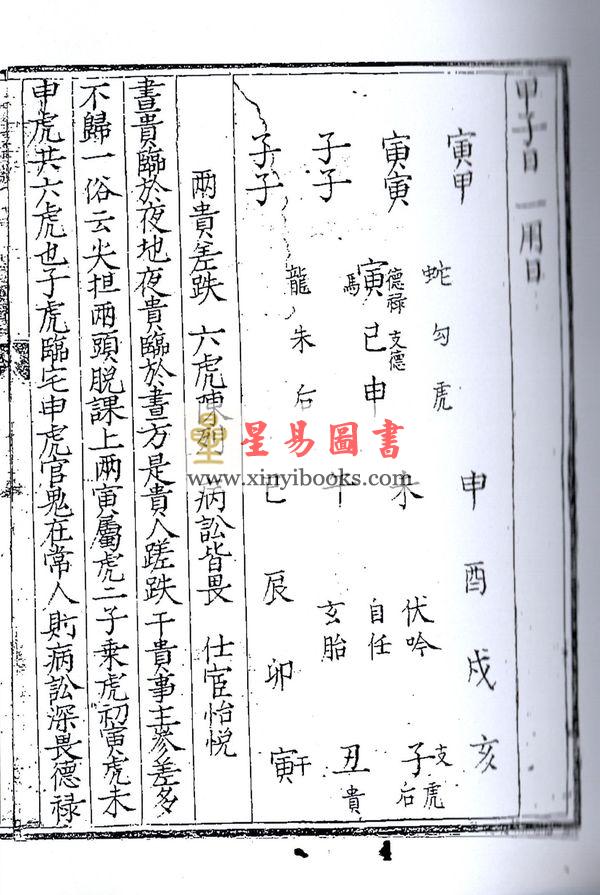 甲子日 一用日
寅甲 蛇勾虎 申酉戌亥
寅寅 德禄 支德 未 伏吟 子 支虎
寅巳申 自任 后
子子 馬 午 玄胎 丑貴
龍朱后
子子 巳辰卯寅 干
兩貴差跌 六虎陳列 病訟皆畏 仕宦怡悅
晝貴臨於夜地夜貴臨於晝方是貴人蹉跌干貴事主參差多
不歸一俗云尖担兩頭脱課上兩寅屬虎二子乘虎初寅虎末
申虎共六虎也子虎臨宅申虎官鬼在常人則病訟深畏德禄
星易圖書
www.xinyibooks.com
4